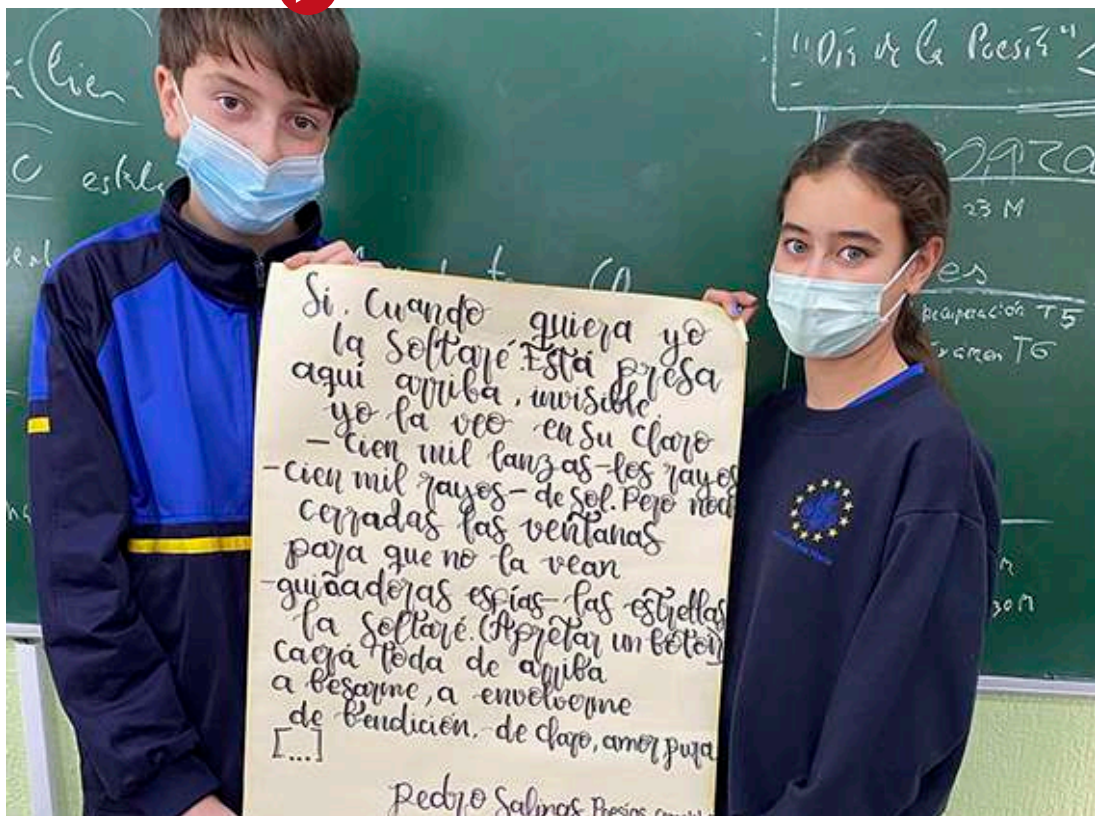 bien
"Día de la Poesía"
23 M
es
recuperación T5
Examen T6
30M
Si. Cuando quiera yo
la soltaré. Está presa
aquí arriba, invisible.
yo la veo en su claro
- Cien mil lanzas - los rayos
- cien mil rayos - de sol. Pero
cerradas las ventanas
para que no la vean
- guiñadoras espías - las estrellas
la soltaré. (Apretar un botón)
Caerá toda de arriba
a besarme, a envolverme
de bendición, de claro, amor pura
[...]
Pedro Salinas Poesías